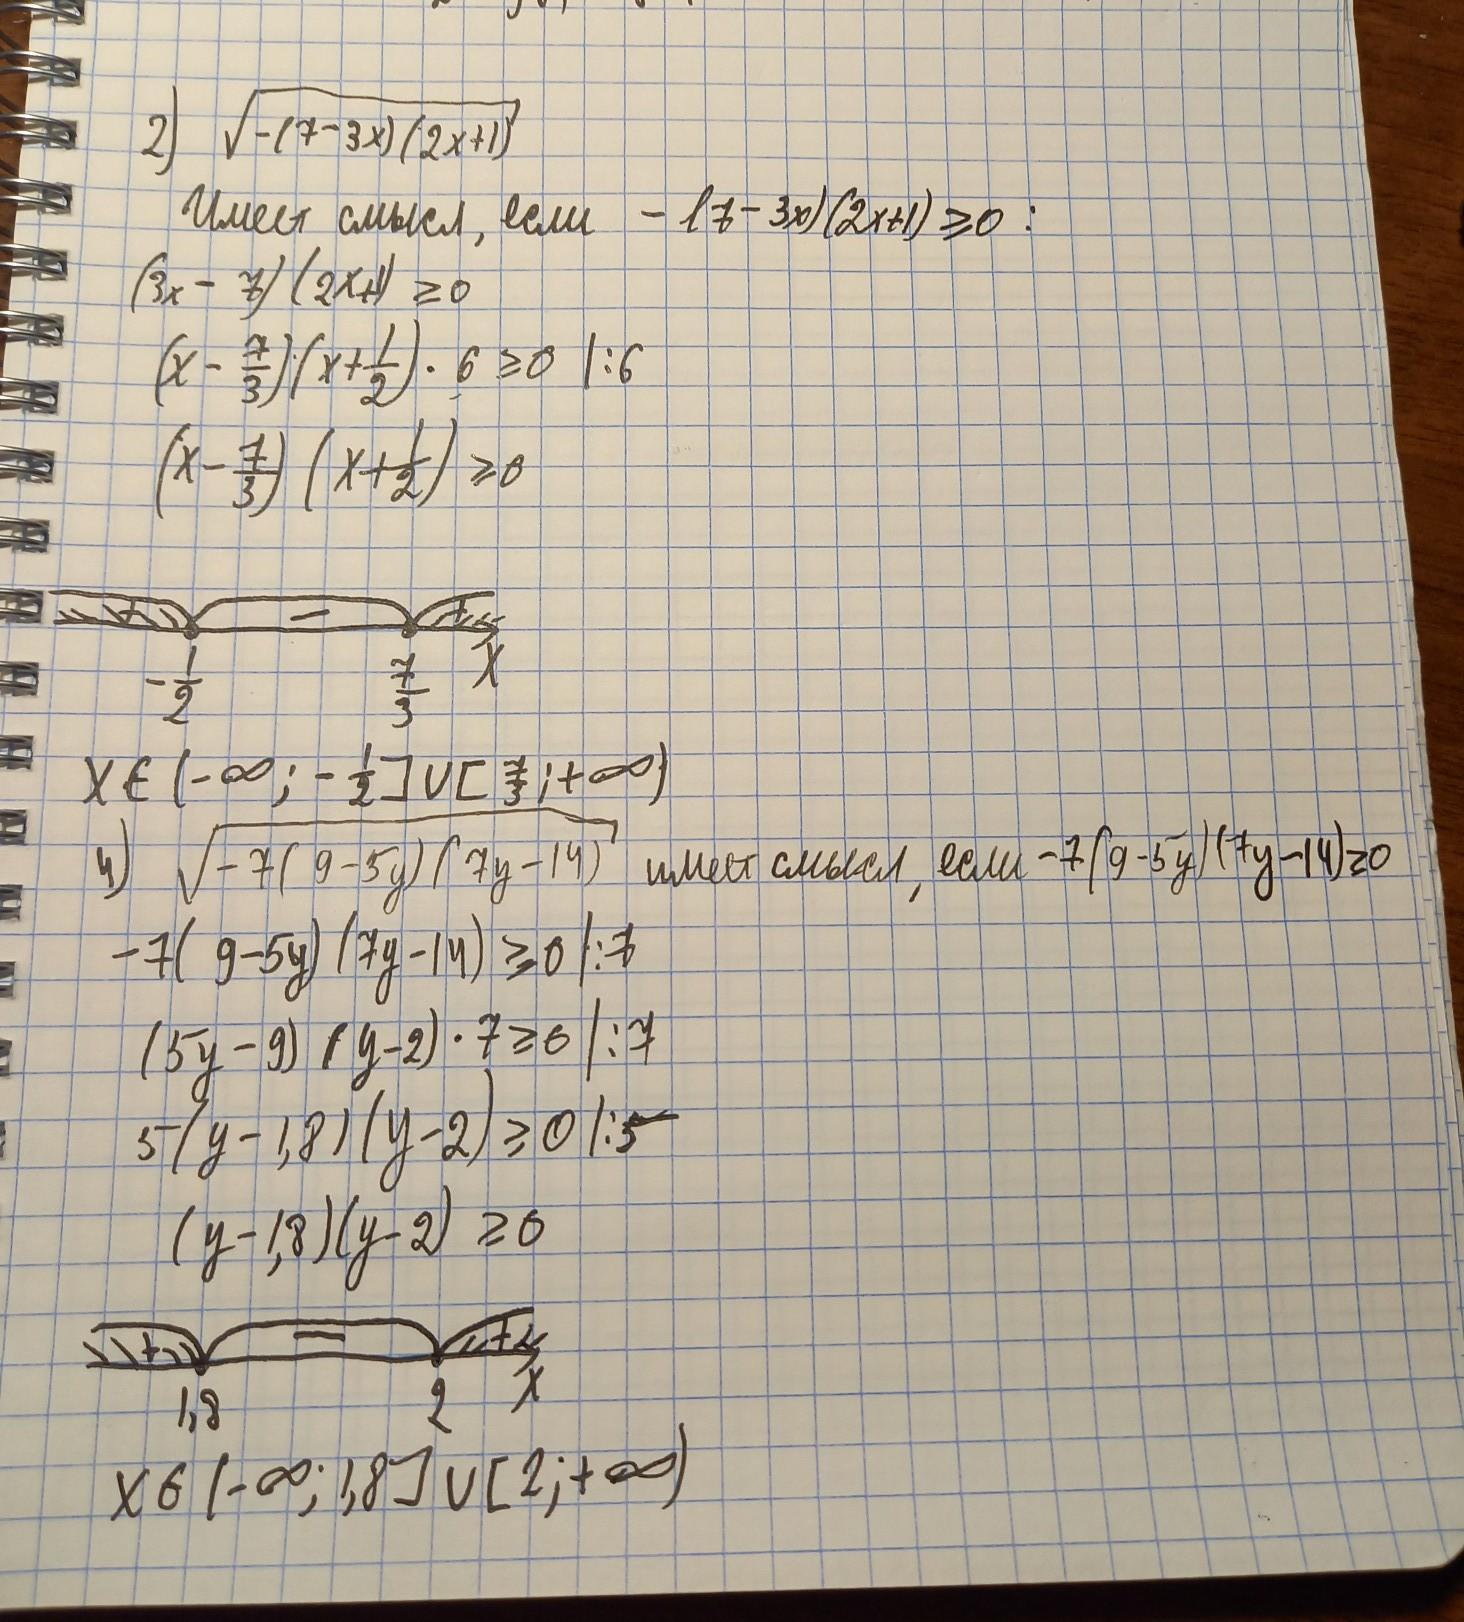 2) √-(7-3x)(2x+1)
Имеет смысл, если -(7-3x)(2x+1)≥0:
(3x-7)(2x+1)≥0
(x-7/3)(x+1/2)·6≥0 |:6
(x-7/3)(x+1/2)≥0
+ - +
-1/2 7/3 x
x∈(-∞;-1/2]∪[7/3;+∞)
4) √-7(9-5y)(7y-14) имеет смысл, если -7(9-5y)(7y-14)≥0
-7(9-5y)(7y-14)≥0 |:7
(5y-9)(y-2)·7≥0 |:7
5(y-1,8)(y-2)≥0 |:5
(y-1,8)(y-2)≥0
+ - +
1,8 2 x
x∈(-∞;1,8]∪[2;+∞)